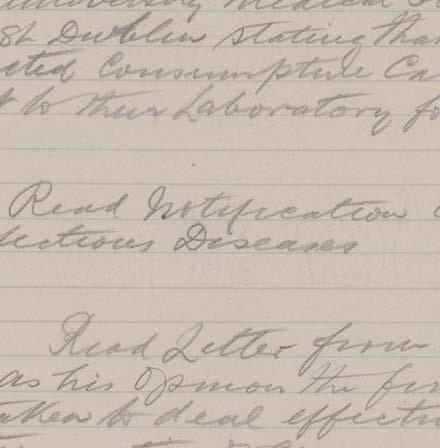 University Medical
St Dublin stating that
cted Consumptive Ca
t to their Laboratory fo
Read Notification
fectious Diseases
Read Letter from
as his Opinion the fir
taken to deal effectiv